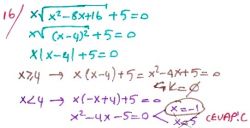 16/ x√x²-8x+16 + 5 = 0
x√(x-4)² + 5 = 0
x|x-4| + 5 = 0
x≥4 → x(x-4)+5 = x²-4x+5 = 0
Ç.K = ∅
x<4 → x(-x+4)+5 = 0 x = -1
x²-4x-5 = 0 x=5 CEVAP: C